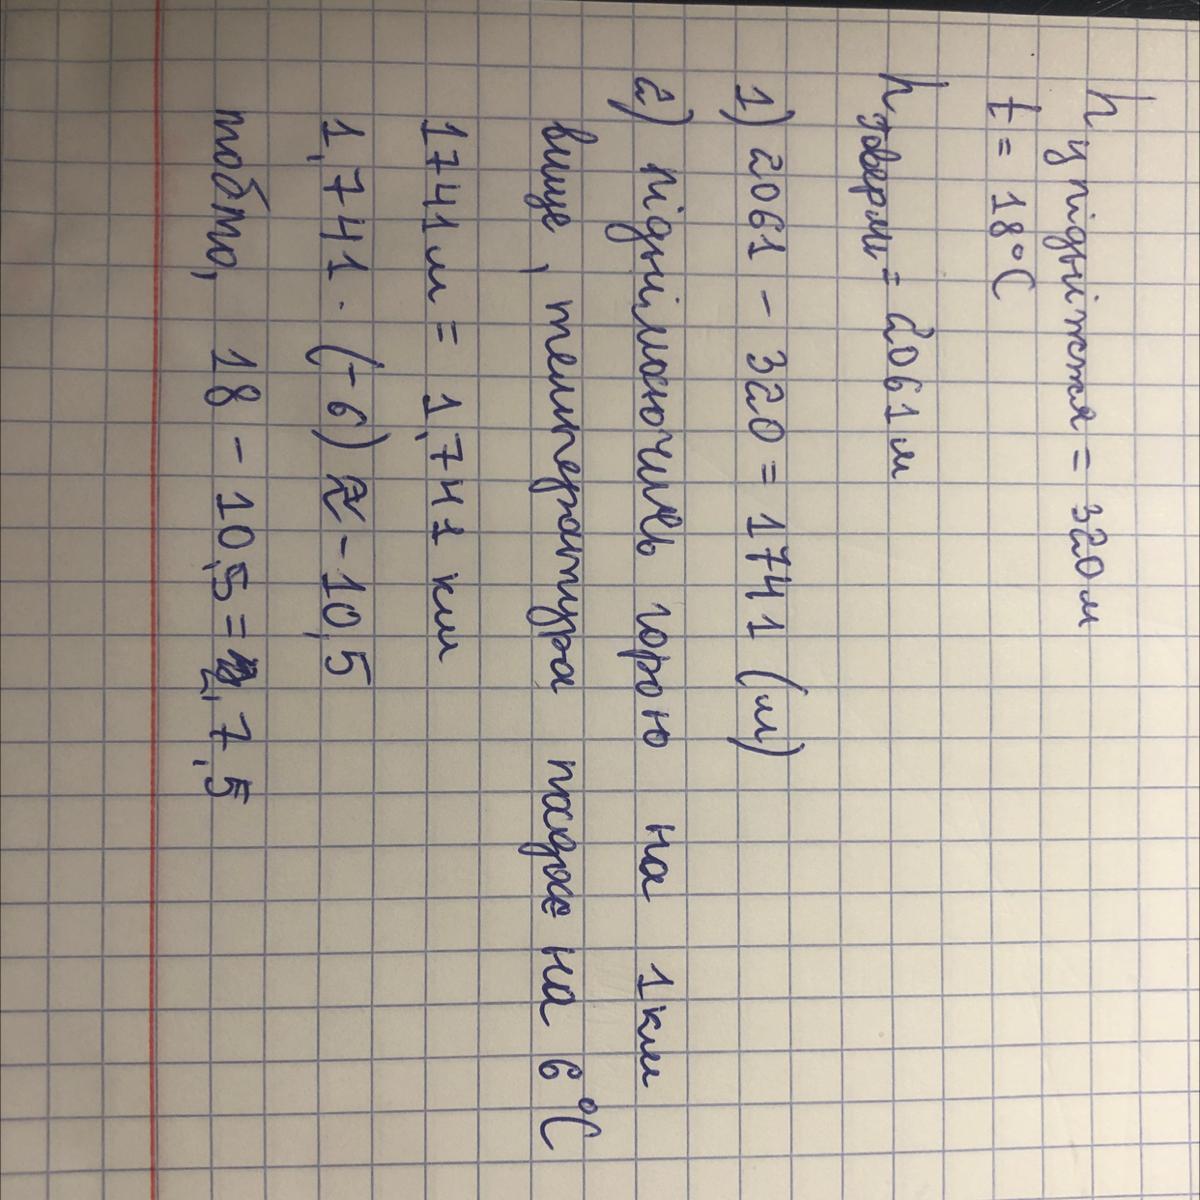 h у підніжжя = 320м
t = 18°C
h Говерли = 2061м
1) 2061 - 320 = 1741 (м)
2) піднімаючись горою на 1км
вище, температура падає на 6°C
1741м = 1,741 км
1,741 · (-6) ≈ -10,5
тобто, 18 - 10,5 = 7,5